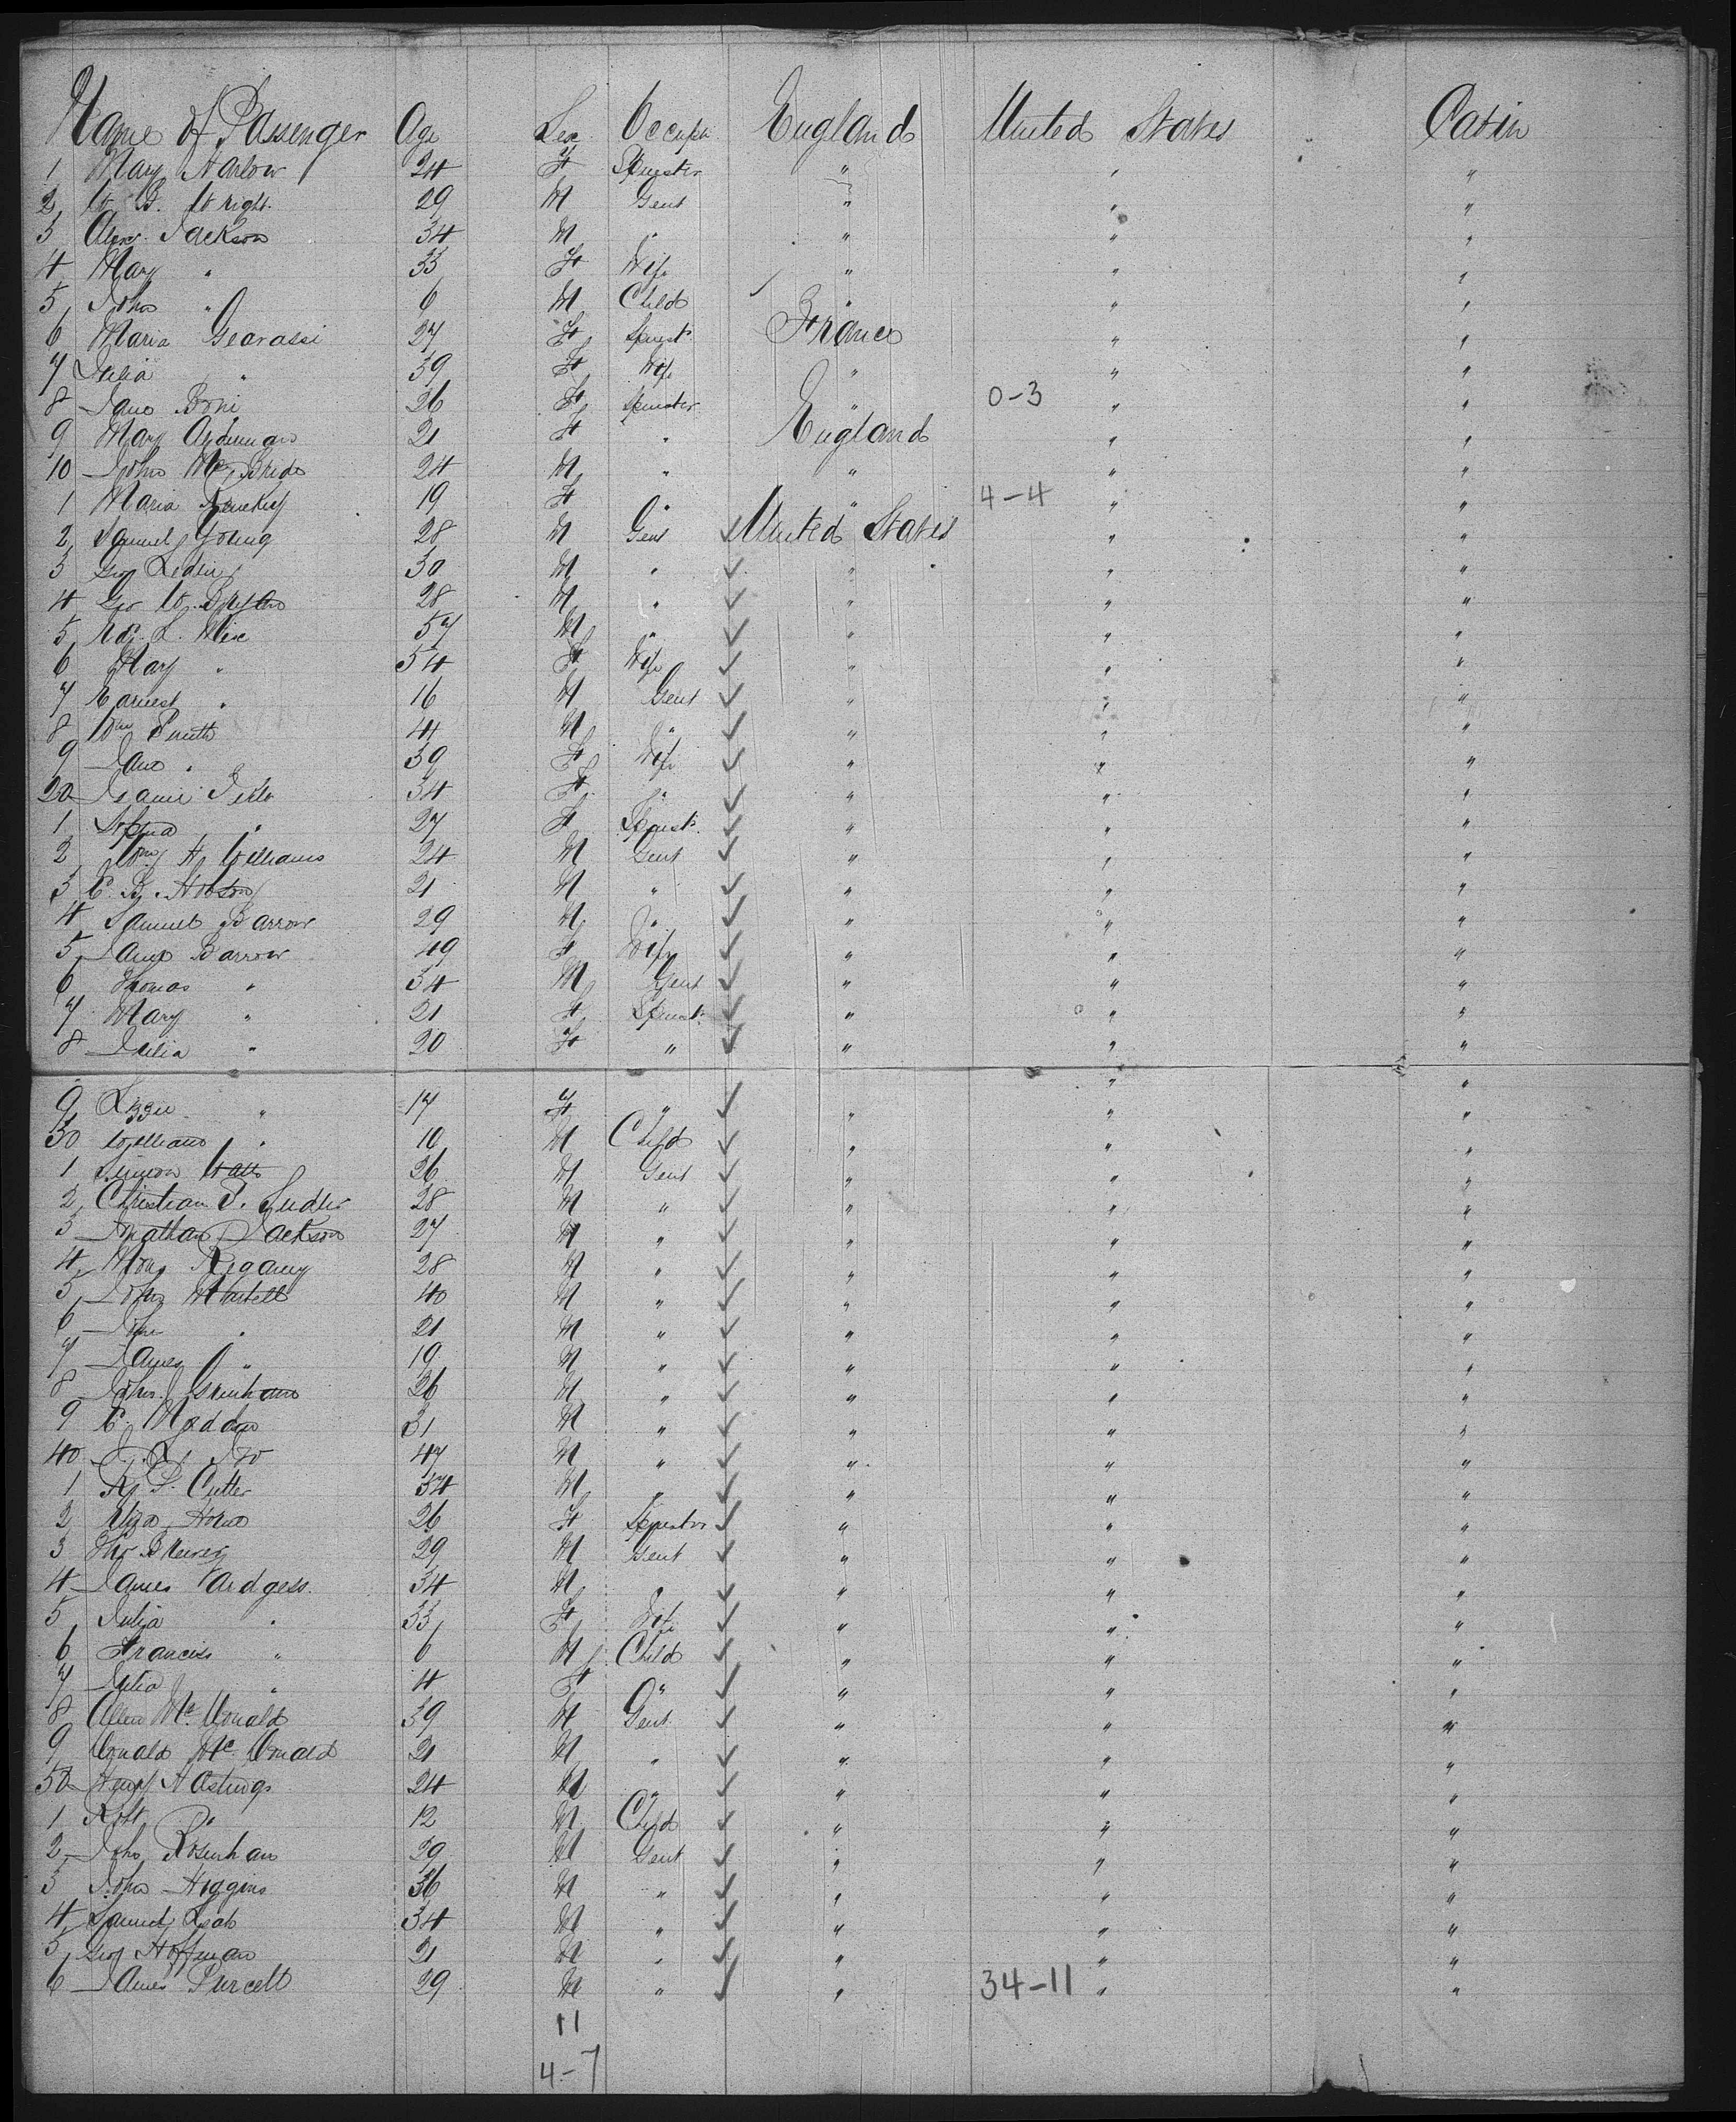 Name of Passenger Age Sex Occupn England United States Cabin
1 Mary Harlow 24 F Spinster " " "
2 W. B. Wright 29 M Gent " " "
3 Alexr. Jackson 34 M " " " "
4 Mary " 33 F Wife " " "
5 John " 6 M Child " " "
6 Maria Gearassi 27 F Spinstr France " "
7 Julia " 39 F Wife " " "
8 Jane Boni 26 F Spinster " 0-3 " "
9 Mary 21 F " England " "
10 John McBride 24 M " " " "
1 Maria 19 F " " 4-4 " "
2 Samuel Young 28 M Gent United States " "
3 Geo 30 M " " " "
4 Geo W. Bryan 28 M " " " "
5 L. Wise 57 M " " " "
6 Mary " 54 F Wife " " "
7 Earnest " 16 M Gent " " "
8 Wm Smith 44 M " " " "
9 Jane " 39 F Wife " " "
20 34 F " " " "
1 Sophia " 27 F Spinstr. " " "
2 Wm H. Williams 24 M Gent " " "
3 C. B. Hobson 21 M " " " "
4 Samuel Barrow 29 M " " " "
5 Jane Barrow 49 F Wife " " "
6 Thomas " 34 M Gent " " "
7 Mary " 21 F Spinstr " " "
8 Julia " 20 F " " " "
" "
9 Lizzie " 17 F " " " "
30 William " 10 M Child " " "
1 Simeon Watts 26 M Gent " " "
2 Christian F. 28 M " " " "
3 Jonathan Jackson 27 M " " " "
4 28 M " " " "
5 John 40 M " " " "
6 " 21 M " " " "
7 James " 19 M " " " "
8 John Grenham 26 M " " " "
9 C. Madden 31 M " " " "
40 47 M " " " "
1 R. P. Cutter 34 M " " " "
2 Eliza Horne 26 F Spinstr " " "
3 Tho Brewer 29 M Gent " " "
4 James 34 M " " " "
5 Julia " 33 F Wife " " "
6 Francis " 6 M Child " " "
7 Julia " 4 F " " " "
8 Allen McDonald 39 M Gent " " "
9 Donald McDonald 21 M " " " "
50 Henry Hastings 24 M " " " "
1 Robt " 12 M Child " " "
2 John Rosenham 39 M Gent " " "
3 John Higgins 36 M " " " "
4 Samuel 34 M " " " "
5 Geo Hoffman 21 M " " " "
6 James Purcell 29 M " " 34-11 " "
11
4-7